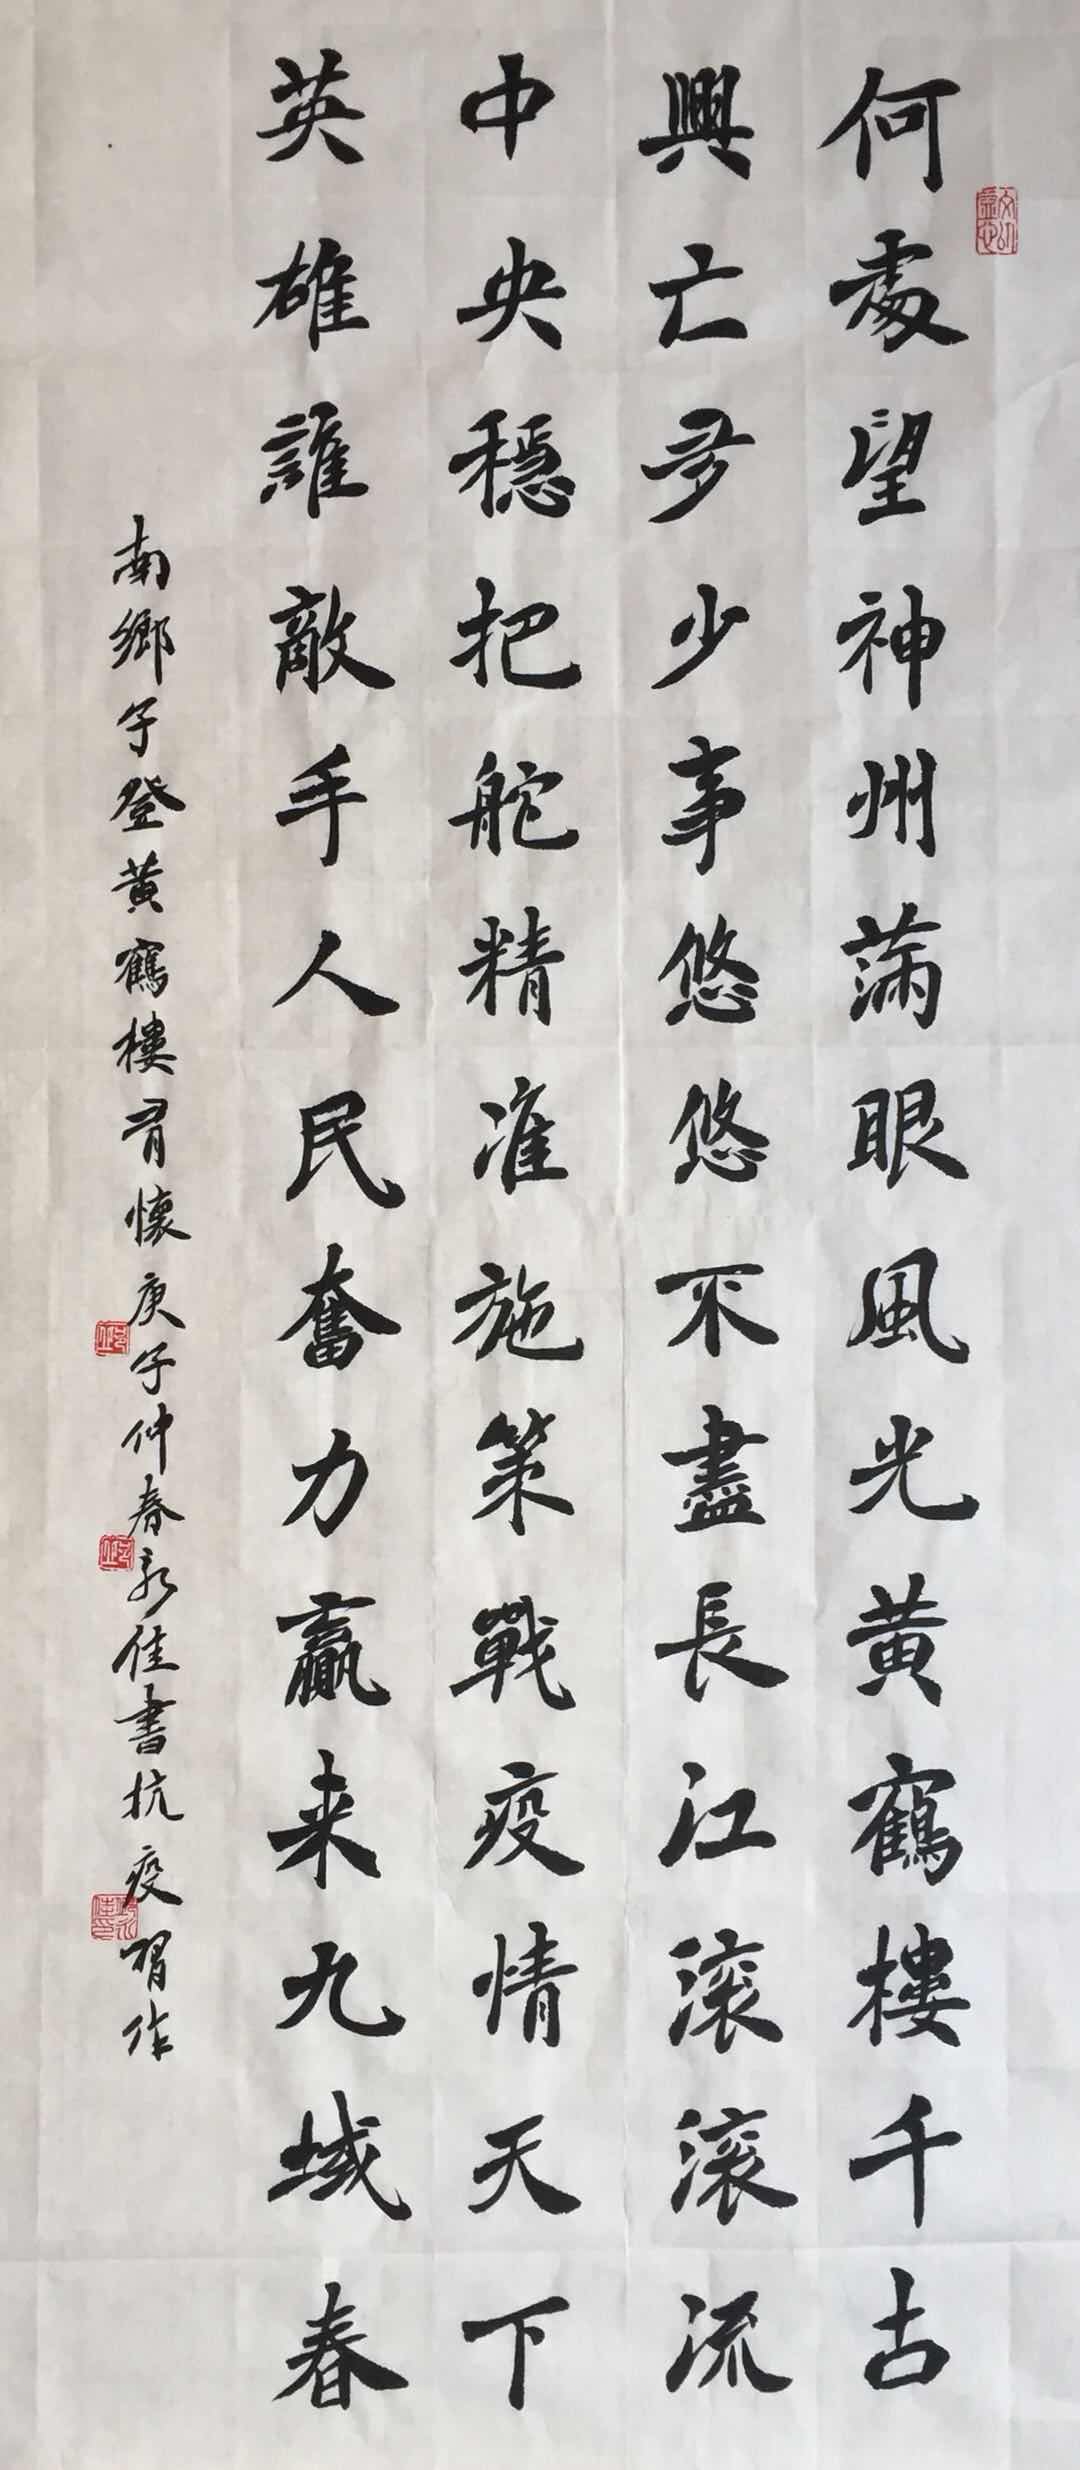 何處望神州滿眼風光黄鶴樓千古
興亡多少事悠悠不盡長江滚滚流
中央穩把舵精准施策戰疫情天下
英雄誰敵手人民奮力贏来九域春
南鄉子登黄鶴樓有懷庚子仲春永佳書抗疫習作